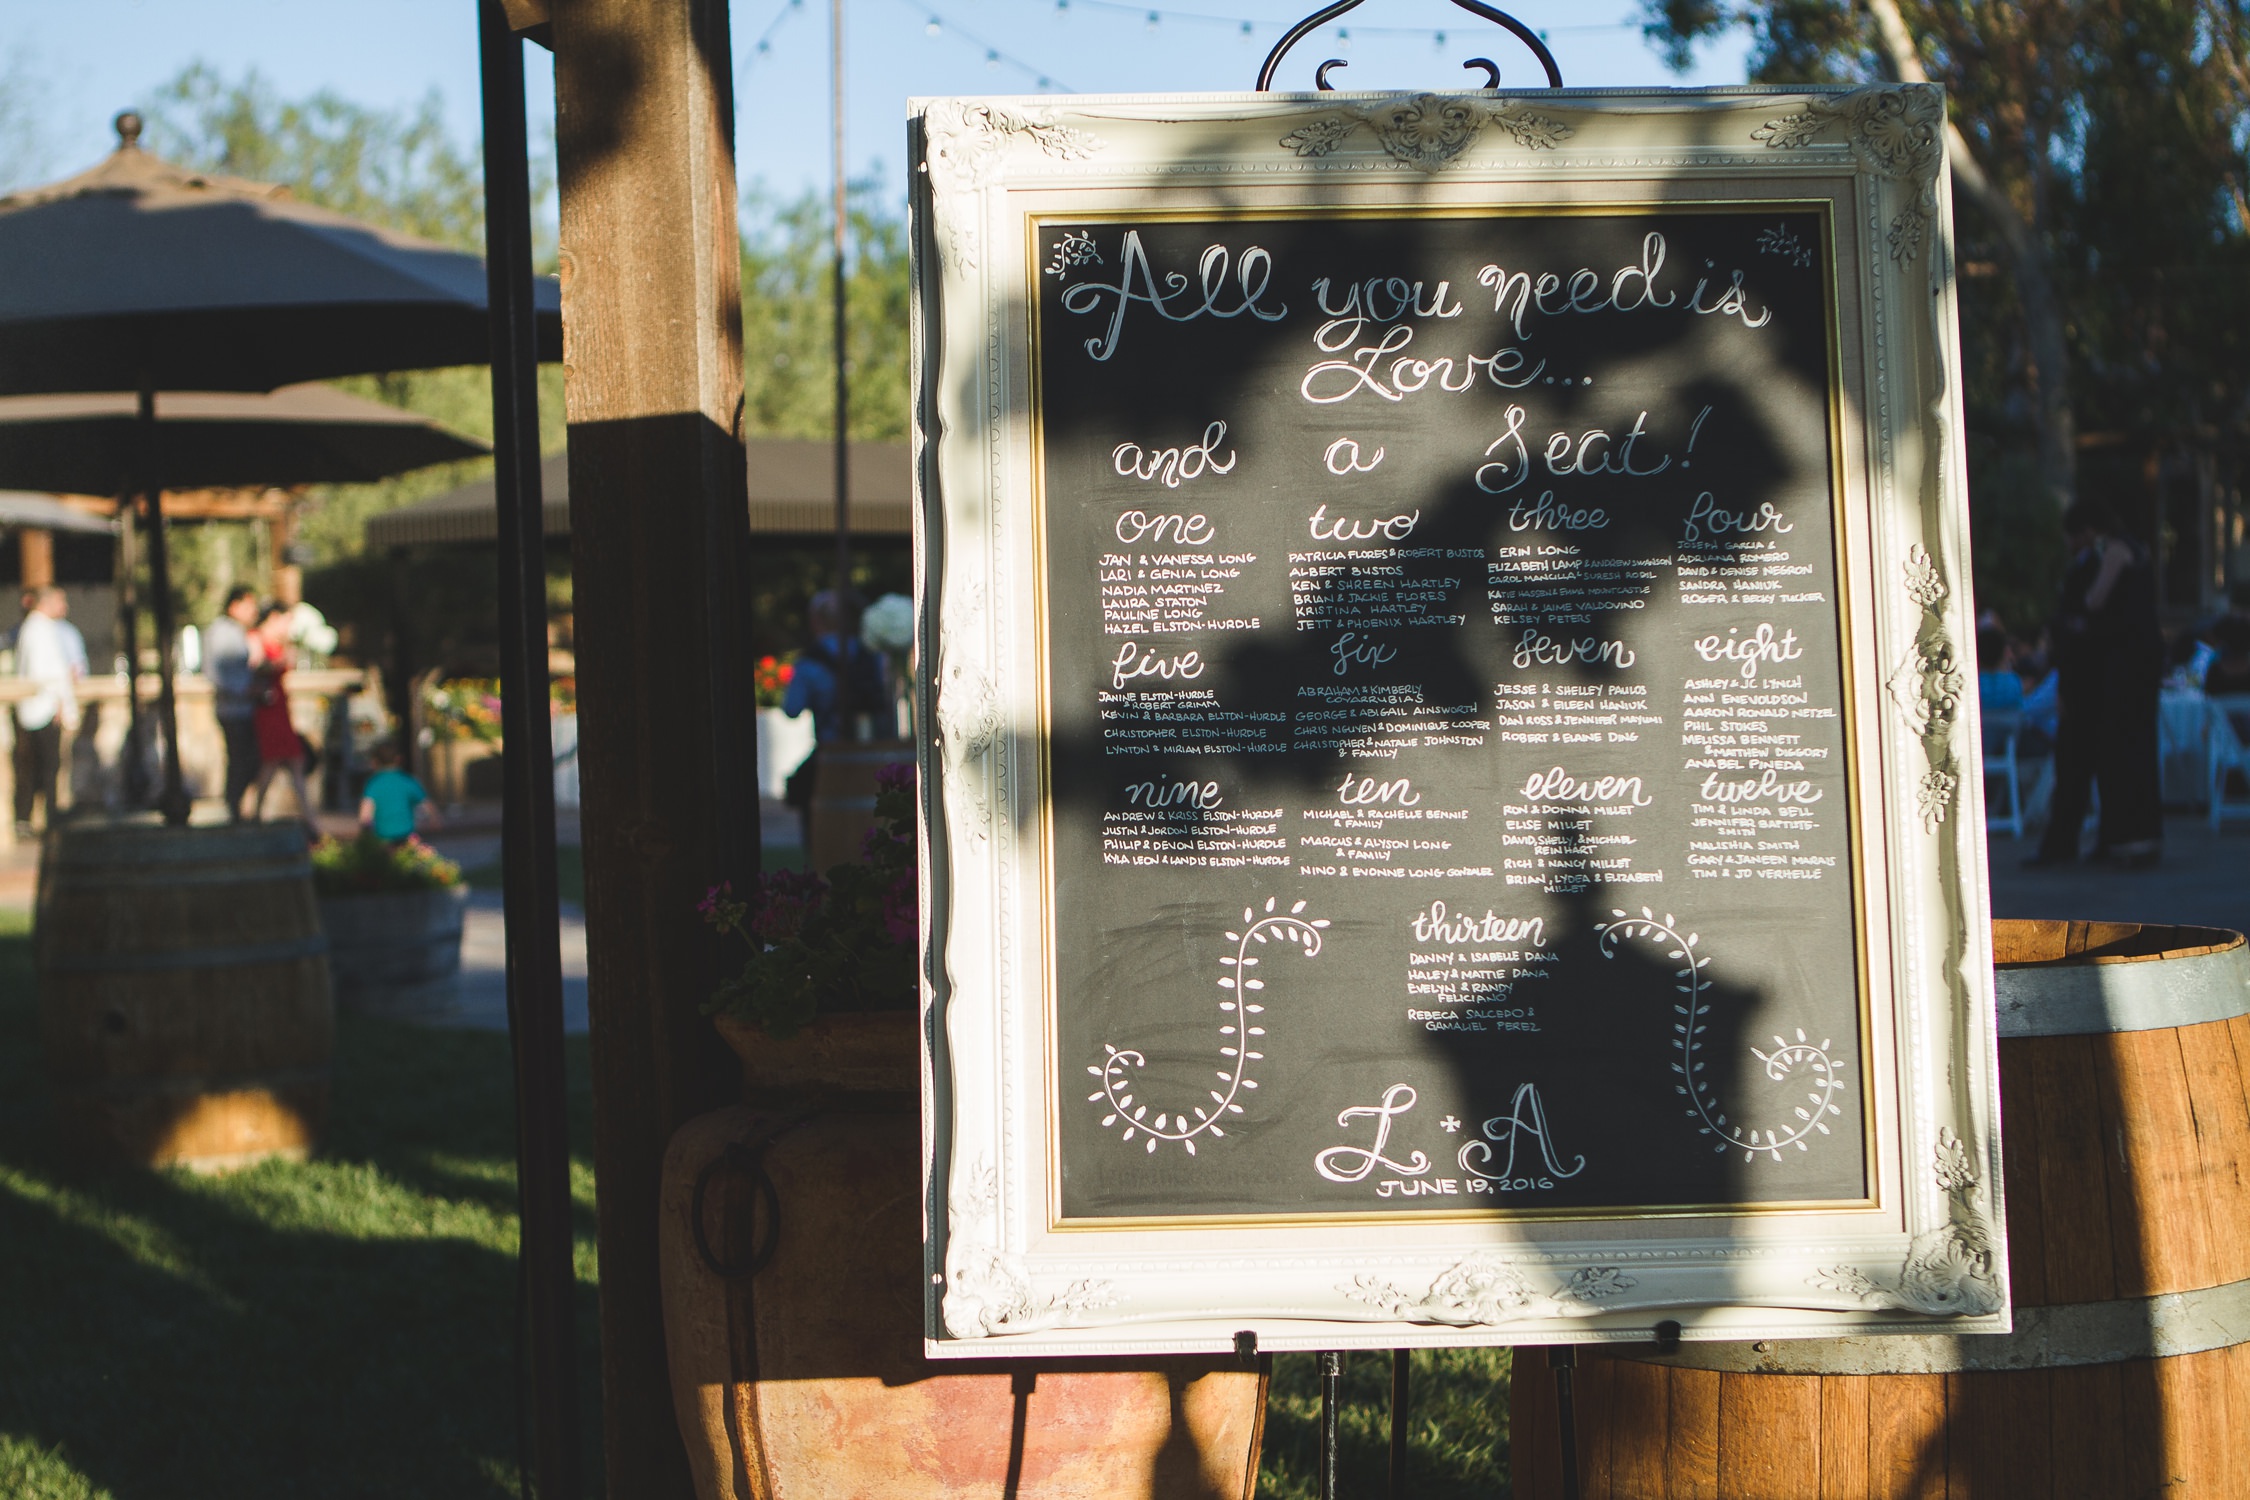 All you need is
Love...
and a Seat!
one
JAN & VANESSA LONG
LARI & GENIA LONG
NADIA MARTINEZ
LAURA STATON
PAULINE LONG
HAZEL ELSTON-HURDLE
two
PATRICIA FLORES & ROBERT BUSTOS
ALBERT BUSTOS
KEN & SHREEN HARTLEY
BRIAN & JACKIE FLORES
KRISTINA HARTLEY
JETT & PHOENIX HARTLEY
three
ERIN LONG
ELIZABETH LAMP & ANDREW SWANSON
CAROL MANCILLA & SURESH RODIL
KATIE HASSEN & EMMA MOUNTCASTLE
SARAH & JAIME VALDOVINO
KELSEY PETERS
four
JOSEPH GARCIA &
ADRIANA ROMERO
DAVID & DENISE NEGRON
SANDRA HANIUK
ROGER & BECKY TUCKER
five
JANINE ELSTON-HURDLE
& ROBERT GRIMM
KEVIN & BARBARA ELSTON-HURDLE
CHRISTOPHER ELSTON-HURDLE
LYNTON & MIRIAM ELSTON-HURDLE
six
ABRAHAM & KIMBERLY
COVARRUBIAS
GEORGE & ABIGAIL AINSWORTH
CHRIS NGUYEN & DOMINIQUE COOPER
CHRISTOPHER & NATALIE JOHNSTON
& FAMILY
seven
JESSE & SHELLEY PAULOS
JASON & EILEEN HANIUK
DAN ROSS & JENNIFER MAYUMI
ROBERT & ELAINE DING
eight
ASHLEY & JC LYNCH
ANN ENEVOLDSON
AARON RONALD NETZEL
PHIL STOKES
MELISSA BENNETT
& MATTHEW DIGGORY
ANABEL PINEDA
nine
ANDREW & KRISS ELSTON-HURDLE
JUSTIN & JORDON ELSTON-HURDLE
PHILIP & DEVON ELSTON-HURDLE
KYLA LEON & LANDIS ELSTON-HURDLE
ten
MICHAEL & RACHELLE BENNIE
& FAMILY
MARCUS & ALYSON LONG
& FAMILY
NINO & EVONNE LONG-GONZALEZ
eleven
RON & DONNA MILLET
ELISE MILLET
DAVID, SHELLY, & MICHAEL
REINHART
RICH & NANCY MILLET
BRIAN, LYDEA & ELIZABETH
MILLET
twelve
TIM & LINDA BELL
JENNIFER BAPTISTE-
SMITH
MALISHIA SMITH
GARY & JANEEN MARAIS
TIM & JO VERHELLE
thirteen
DANNY & ISABELLE DANA
HALEY & MATTIE DANA
EVELYN & RANDY
FELICIANO
REBECA SALCEDO &
GAMALIEL PEREZ
L + A
JUNE 19, 2016